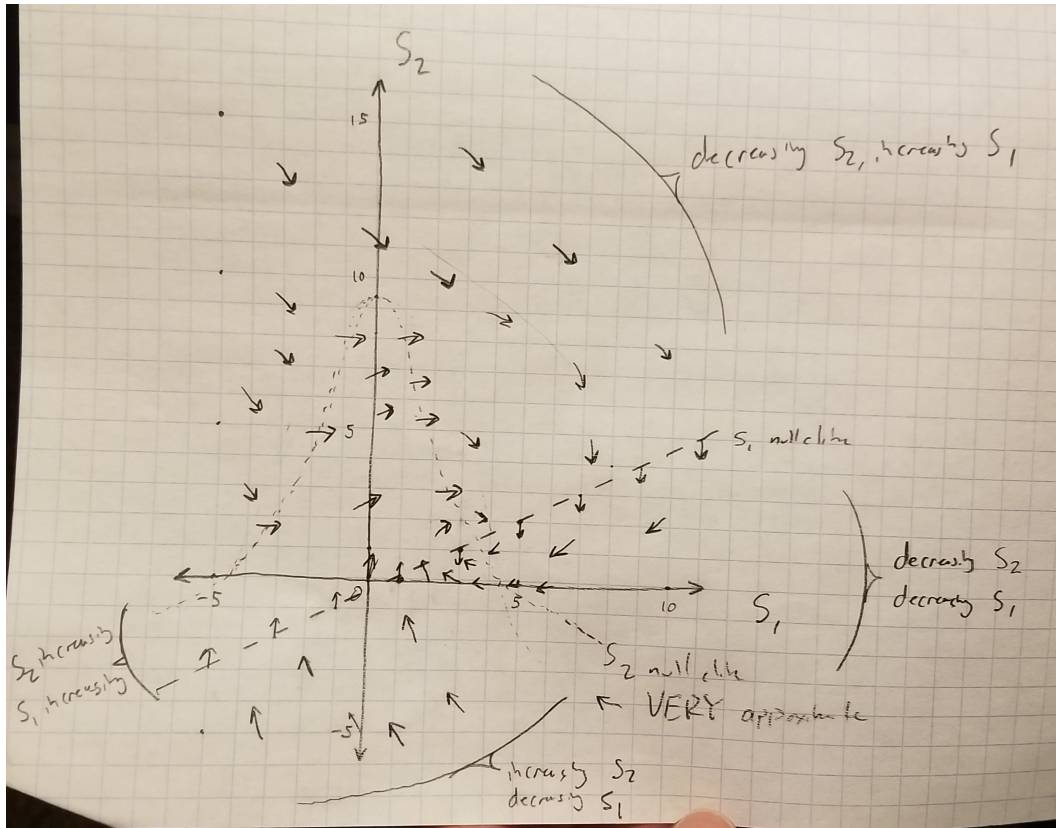 S₂
15
decreasing S₂, increasing S₁
10
5
S₁ nullcline
-5
0
5
10
S₁
decreasing S₂
decreasing S₁
S₂ increasing
S₁ increasing
S₂ nullcline
VERY approximate
-5
increasing S₂
decreasing S₁